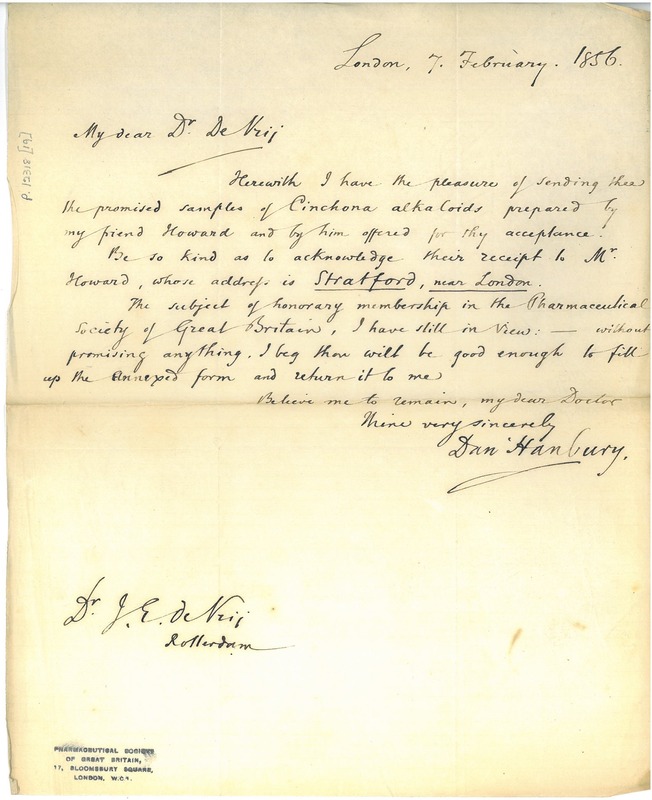 London, 7. February. 1856.
My dear Dr. De Vrij
Herewith I have the pleasure of sending thee
the promised samples of Cinchona alkaloids prepared by
my friend Howard and by him offered for thy acceptance.
Be so kind as to acknowledge their receipt to Mr.
Howard, whose address is Stratford, near London.
The subject of honorary membership in the Pharmaceutical
Society of Great Britain, I have still in view: — without
promising anything. I beg thou will be good enough to fill
up the annexed form and return it to me
Believe me to remain, my dear Doctor
Thine very sincerely
Danl Hanbury.
Dr. J. E. de Vrij
Rotterdam
P 12318 [19]
PHARMACEUTICAL SOCIETY
OF GREAT BRITAIN,
17, BLOOMSBURY SQUARE,
LONDON, W.C.1.